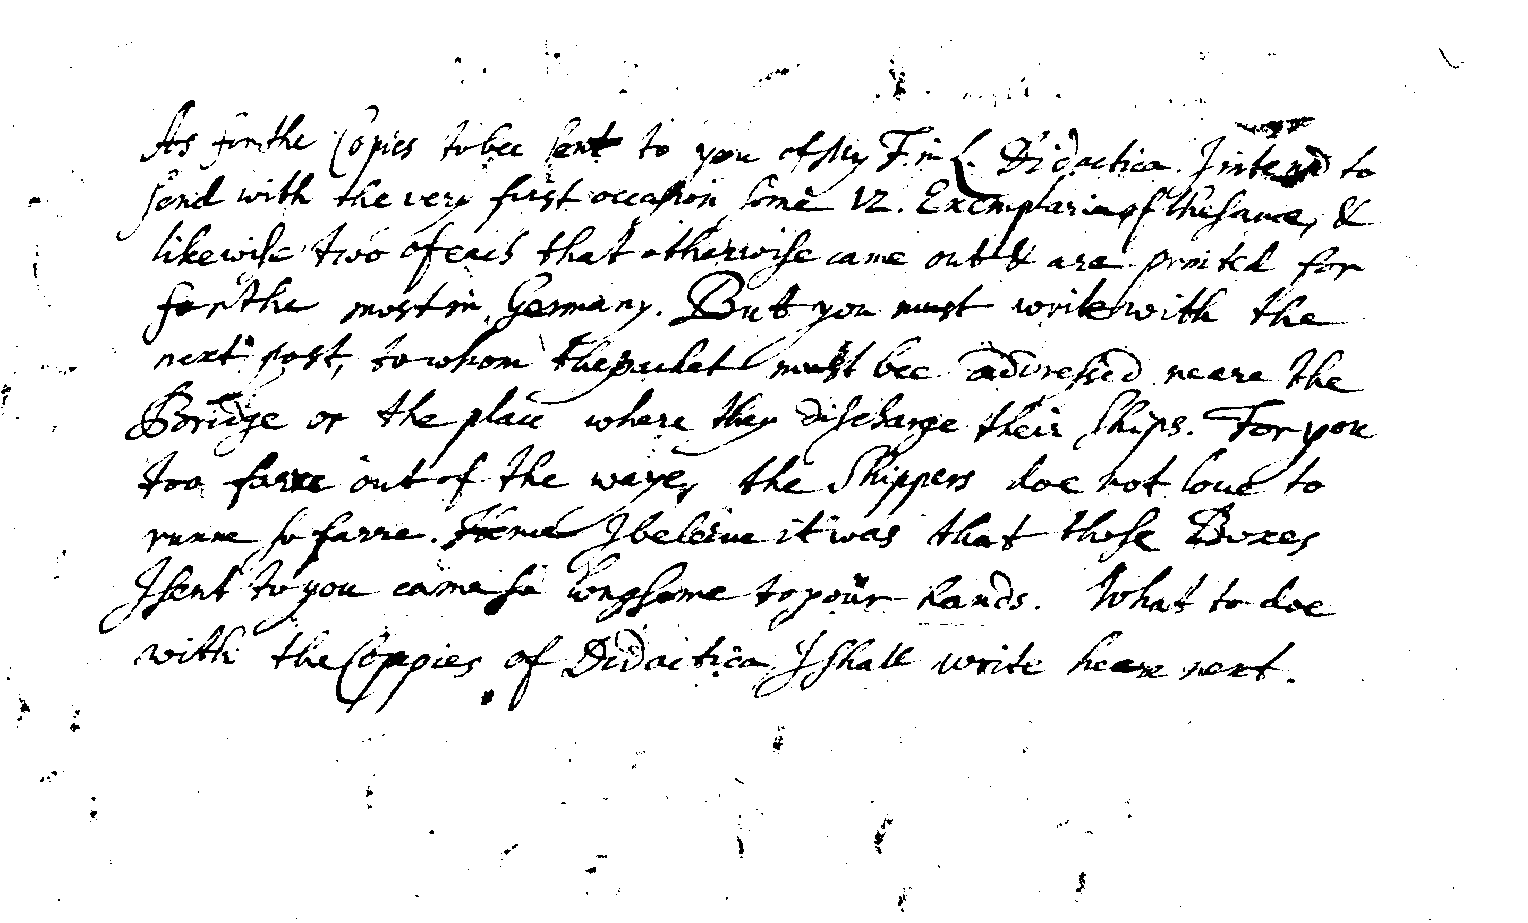 As for the Copies to bee sent to you of My F. in L. Didactica I intend to
send with the very first occasion some 12. Exemplaria of the same, &
likewise two of each that otherwise came out & are printed for
for the most in Germany. But you must write with the
next post, to whom the packet must bee addressed neare the
Bridge or the place where they discharge their Ships. For you
too farre out of the waye, the Skippers doe not loue to
runne so farre. Hence I beleeue it was that those Boxes
I sent to you came so longsome to your hands. What to doe
with the Coppies of Didactica I shall write heare next.